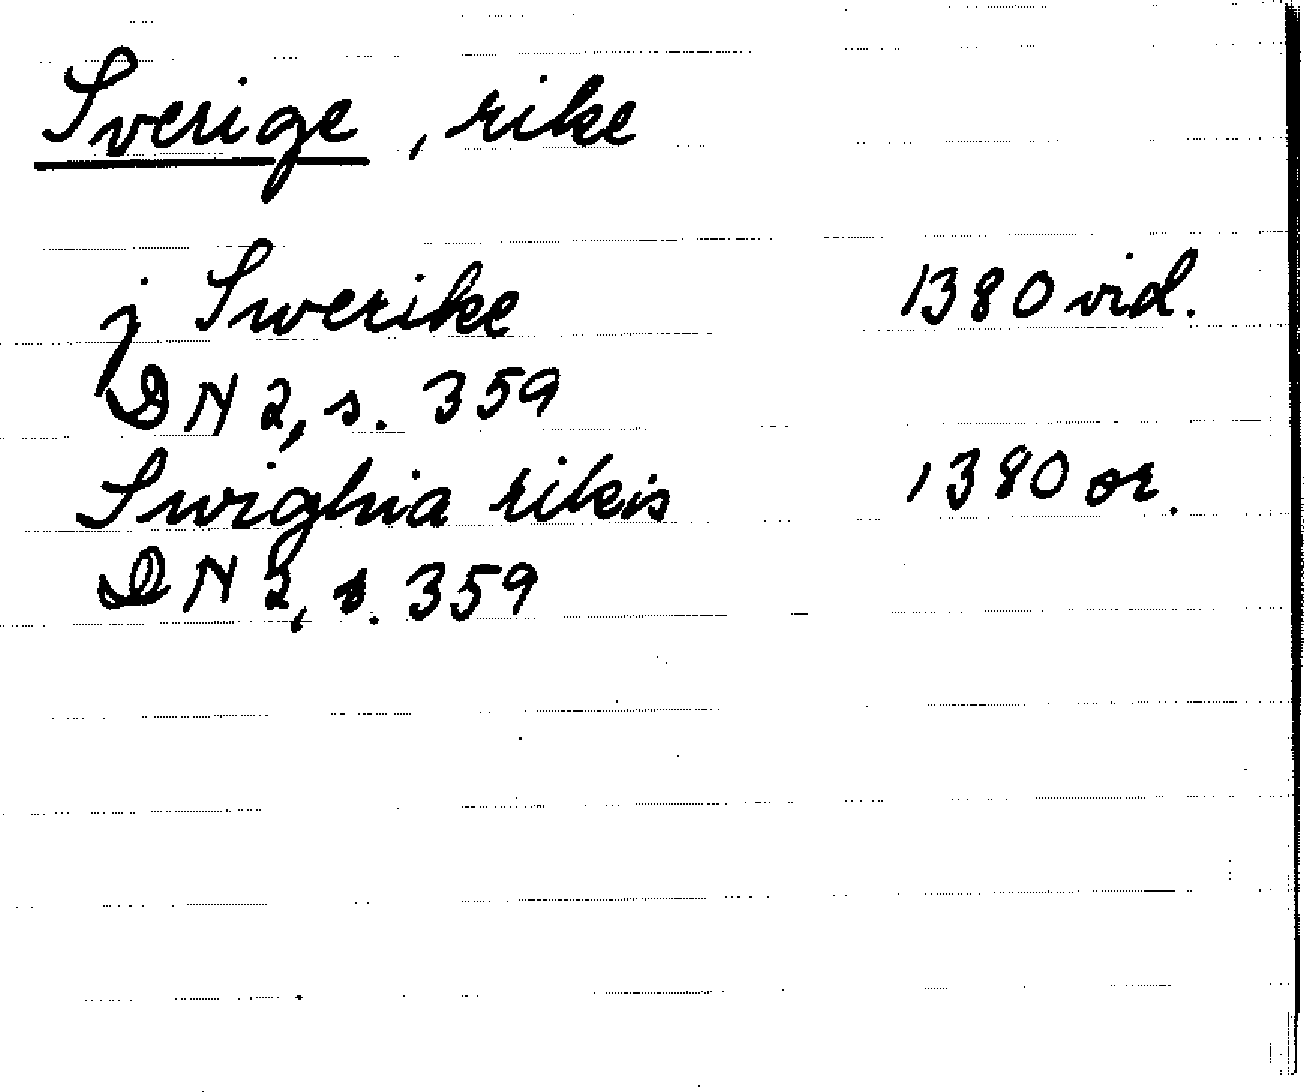 Sverige, rike
j Swerike 1380 vid.
DN 2, s. 359
Swighia rikis 1380 or.
DN 2, s. 359